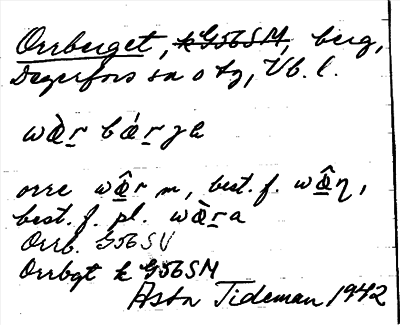 Orrberget, k G56SM, berg,
Degerfors sn o tg, Vb. l.
orre wâ̱r m, best. f. wâ̱η,
best. f. pl. wà̱ra
Orrb. G56SV
Orrbgt k G56SM
Asta Tideman 1942